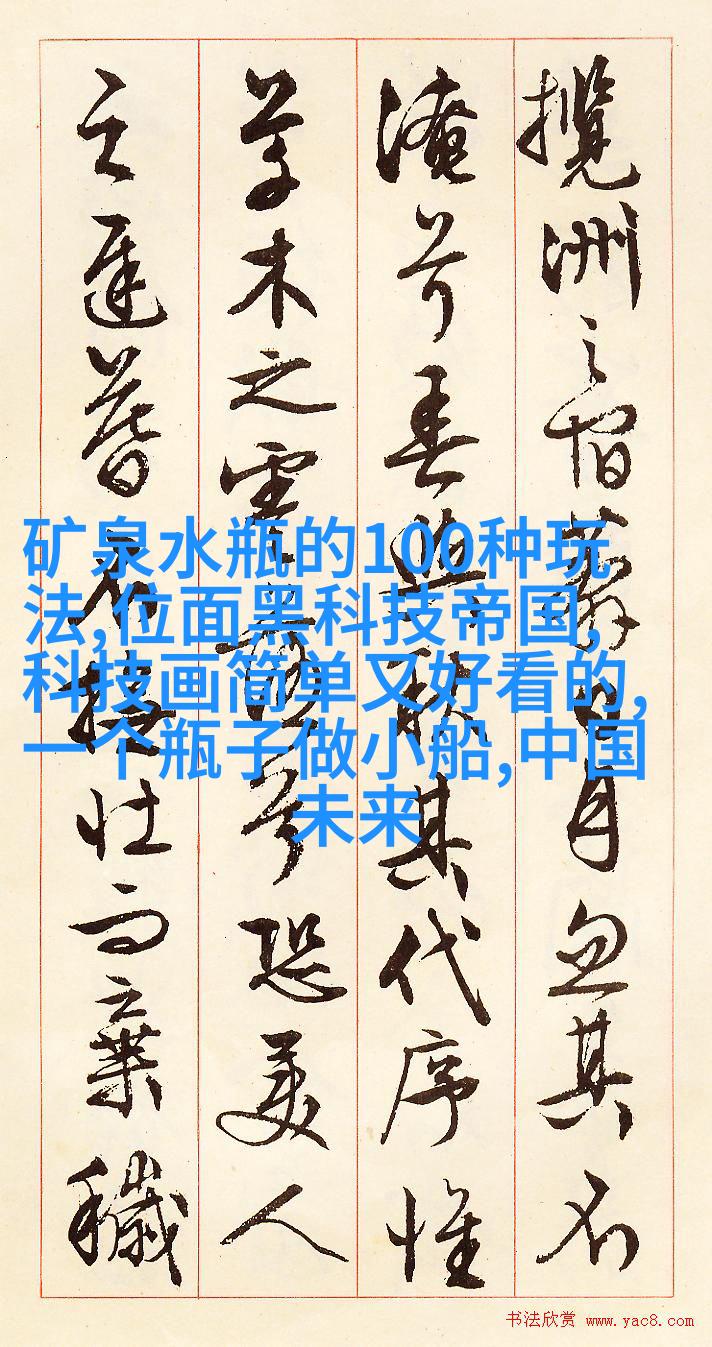 攬洲之宿莽日月忽其不
淹兮春與秋其代序惟
草木之零落兮恐美人
之遲暮不撫壯而棄穢
矿泉水瓶的100种玩
法,位面黑科技帝国,
科技画简单又好看的,
一个瓶子做小船,中国
未来
书法欣赏 www.yac8.com